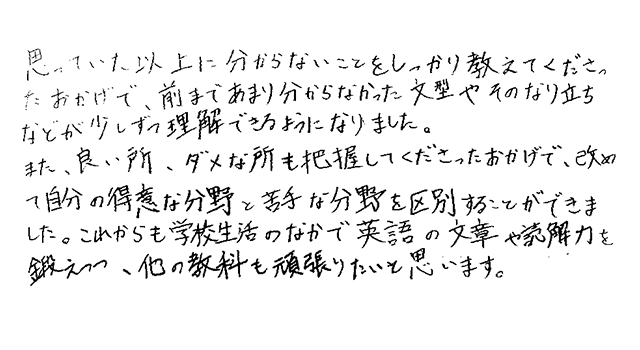 思っていた以上に分からないことをしっかり教えてくださっ
たおかげで、前まであまり分からなかった文型やそのなり立ち
などが少しずつ理解できるようになりました。
また、良い所、ダメな所も把握してくださったおかげで、改め
て自分の得意な分野と苦手な分野を区別することができま
した。これからも学校生活のなかで英語の文章や読解力を
鍛えつつ、他の教科も頑張りたいと思います。